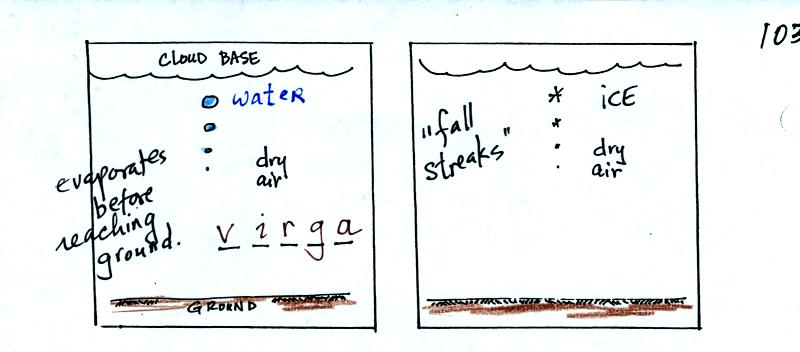 103
CLOUD BASE
water
evaporates
before
reaching
ground.
dry
air
virga
GROUND
"fall
streaks"
iCE
dry
air